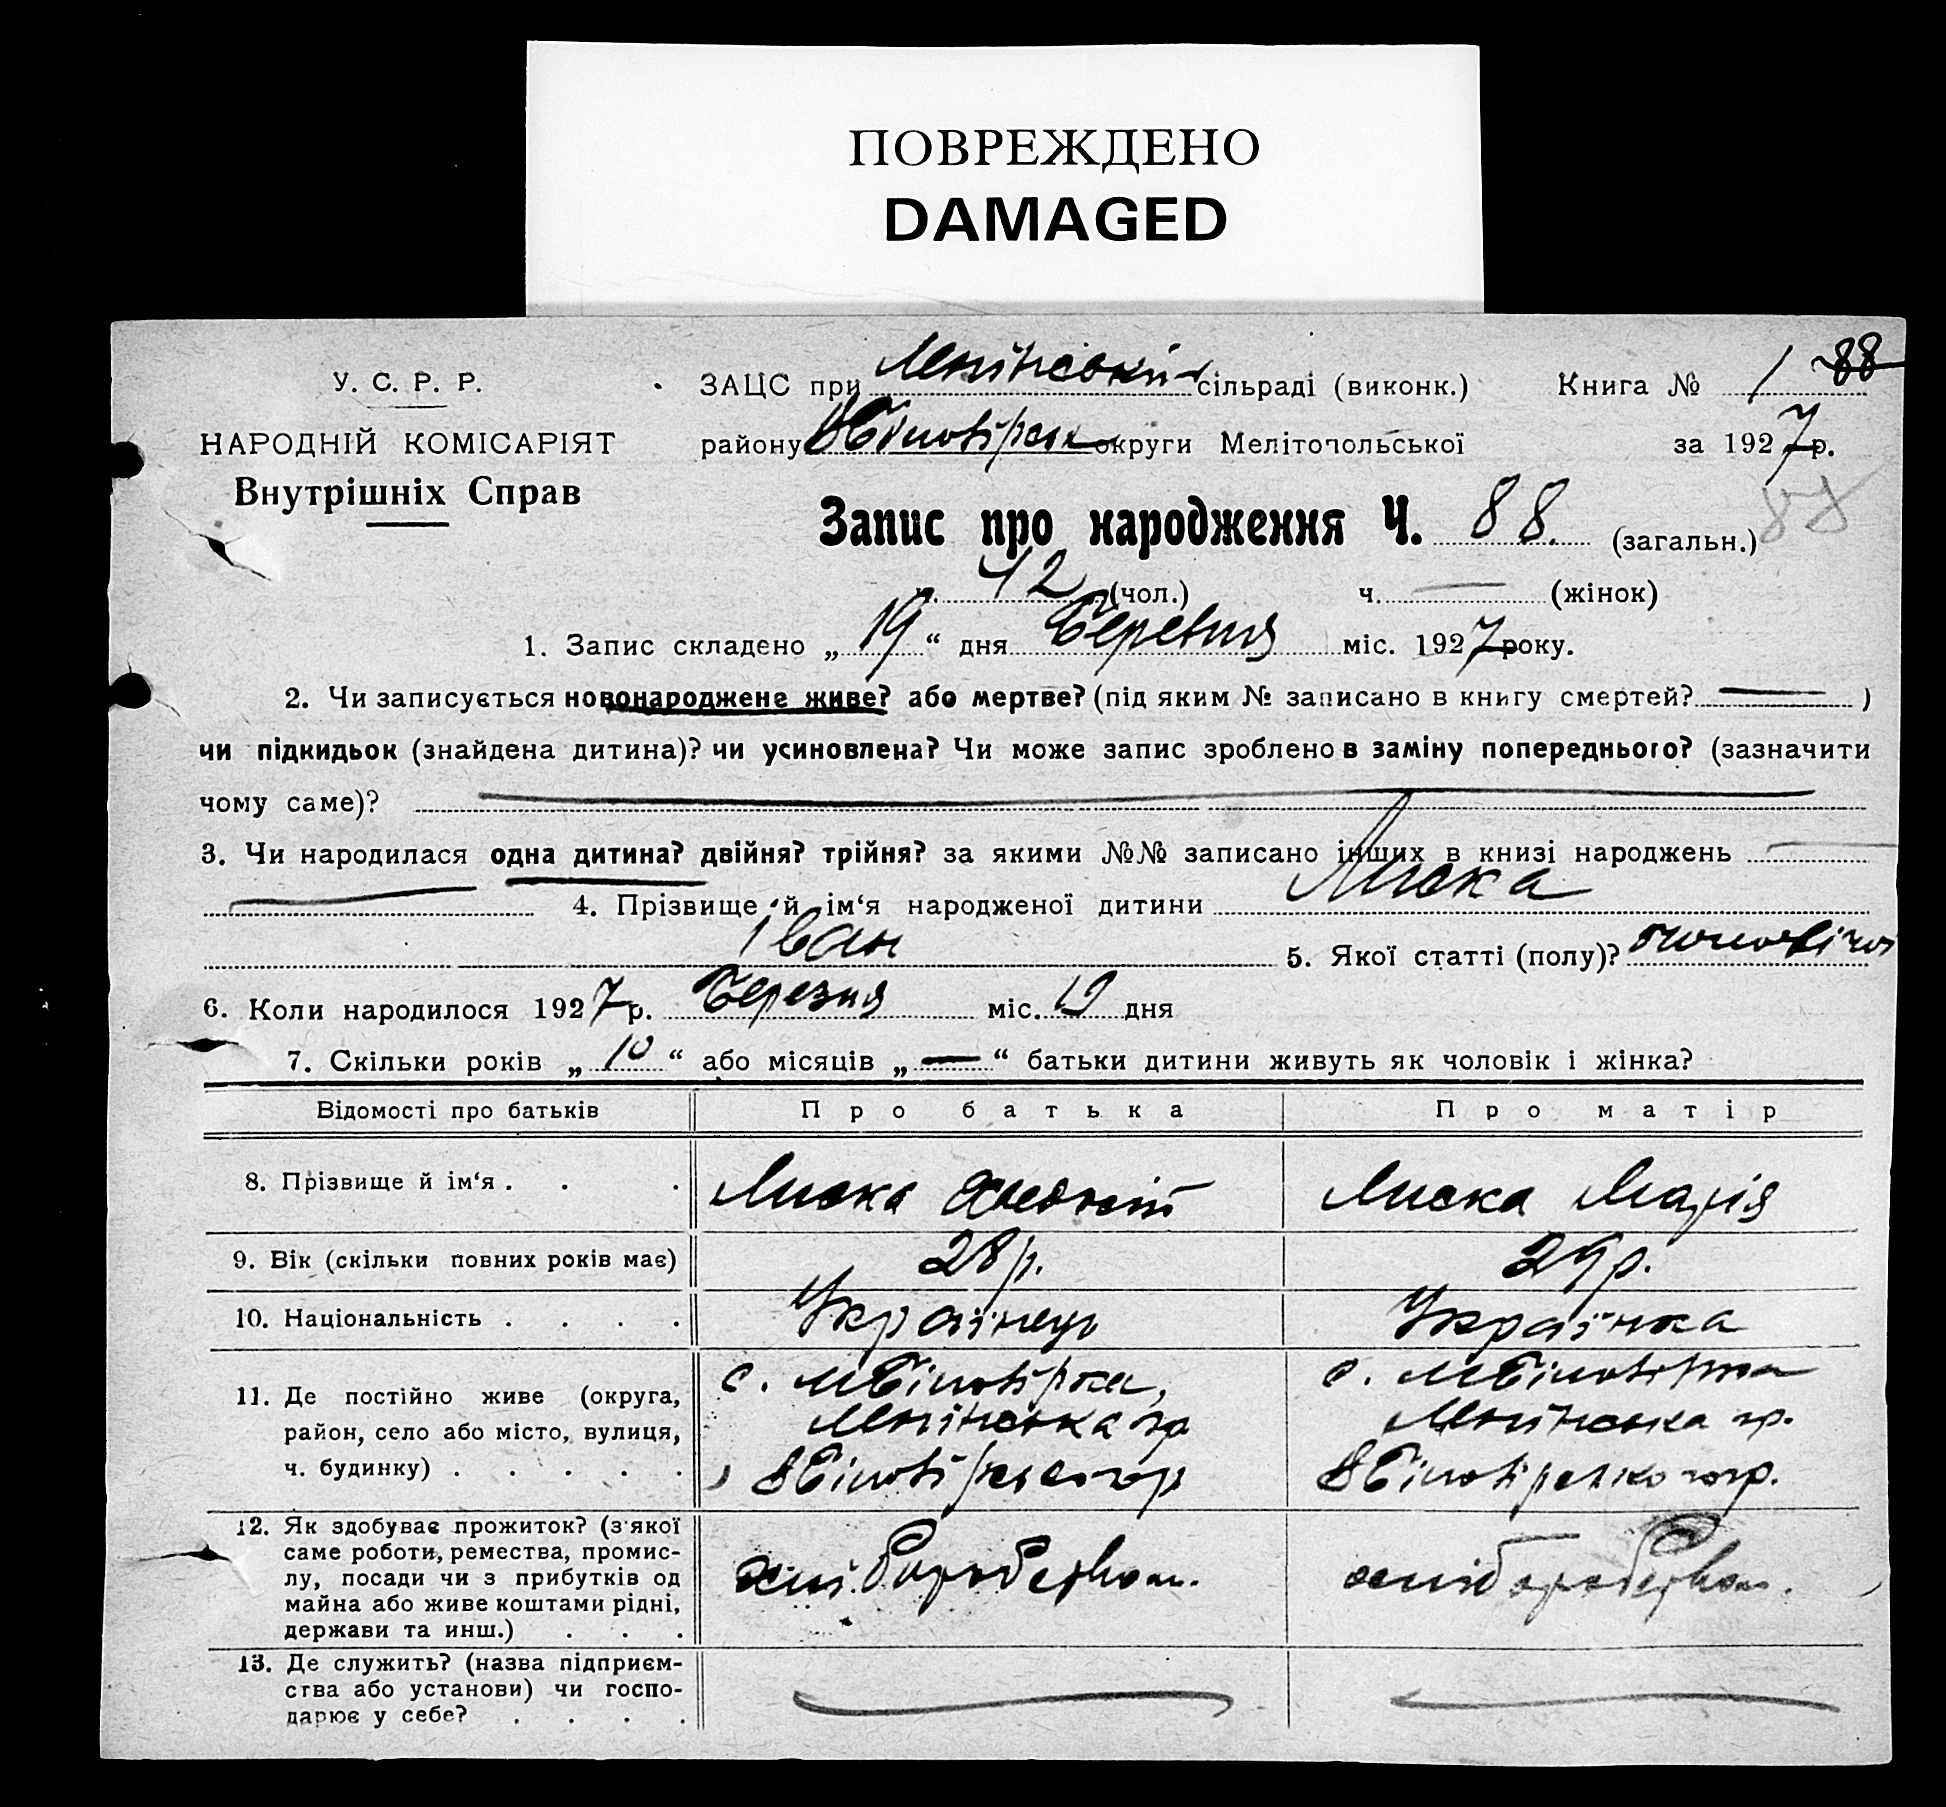 ПОВРЕЖДЕНО
DAMAGED
У. С. Р. Р.
НАРОДНІЙ КОМІСАРІЯТ
Внутрішніх Справ
ЗАЦС при Ленінській сільраді (виконк.) Книга № 1 88
району округи Мелітопольської за 1927 р.
Запис про народження Ч. 88. (загальн.) 88
ч. 42 (чол.) ч. — (жінок)
1. Запис складено „19“ дня Березня міс. 1927 року.
2. Чи записується новонароджене живе? або мертве? (під яким № записано в книгу смертей? — )
чи підкидьок (знайдена дитина)? чи усиновлена? Чи може запис зроблено в заміну попереднього? (зазначити
чому саме)? —
3. Чи народилася одна дитина? двійня? трійня? за якими №№ записано інших в книзі народжень —
— 4. Прізвище й ім‘я народженої дитини Лиска
Іван 5. Якої статті (полу)? чоловічої
6. Коли народилося 1927 р. Березня міс. 19 дня
7. Скільки років „10“ або місяців „—“ батьки дитини живуть як чоловік і жінка?
Відомості про батьків Про батька Про матір
8. Прізвище й ім‘я . . . Лиска Лиска Марія
9. Вік (скільки повних років має) 28 р. 29 р.
10. Національність . . . . Українець Українка
11. Де постійно живе (округа, район, село або місто, вулиця, ч. будинку) . . . . .
с. М Білозірка, с. М Білозірка
Ленінська гр Ленінська гр.
12. Як здобуває прожиток? (з якої саме роботи, ремества, промислу, посади чи з прибутків од майна або живе коштами рідні, держави та инш.) . . .
хліборобством. хліборобством.
13. Де служить? (назва підприємства або установи) чи господарює у себе? . . . . — —